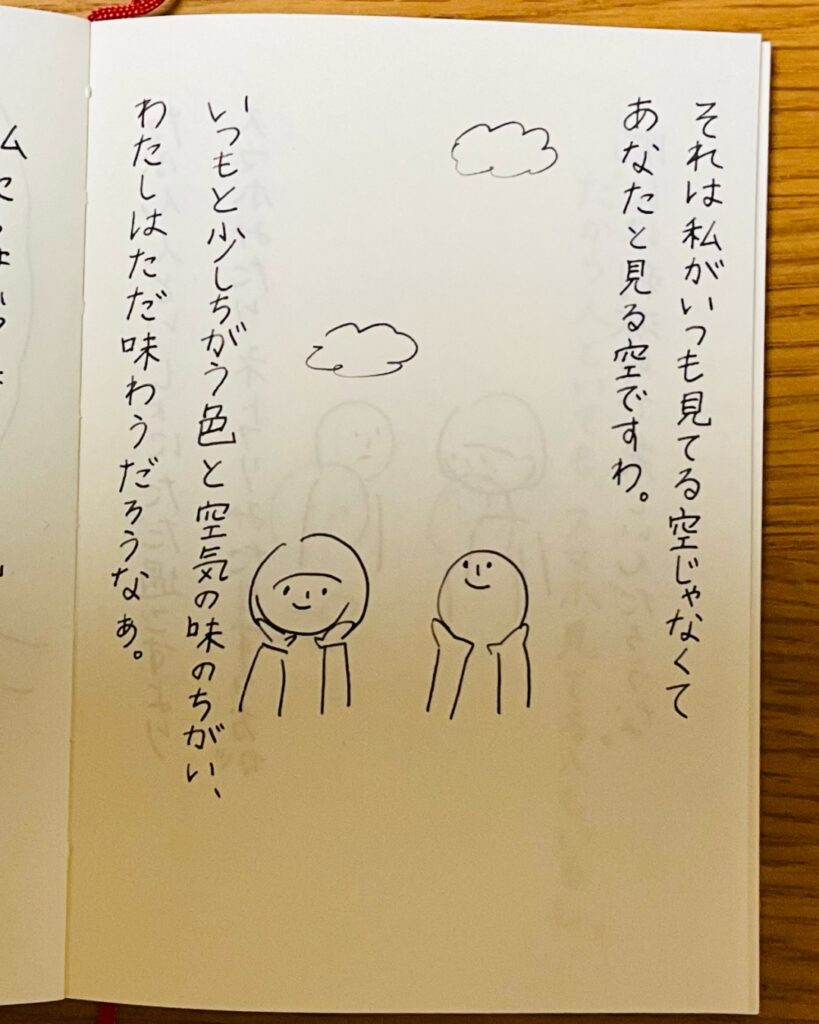 それは私がいつも見てる空じゃなくて
あなたと見る空ですわ。
いつもと少しちがう色と空気の味のちがい、
わたしはただ味わうだろうなぁ。